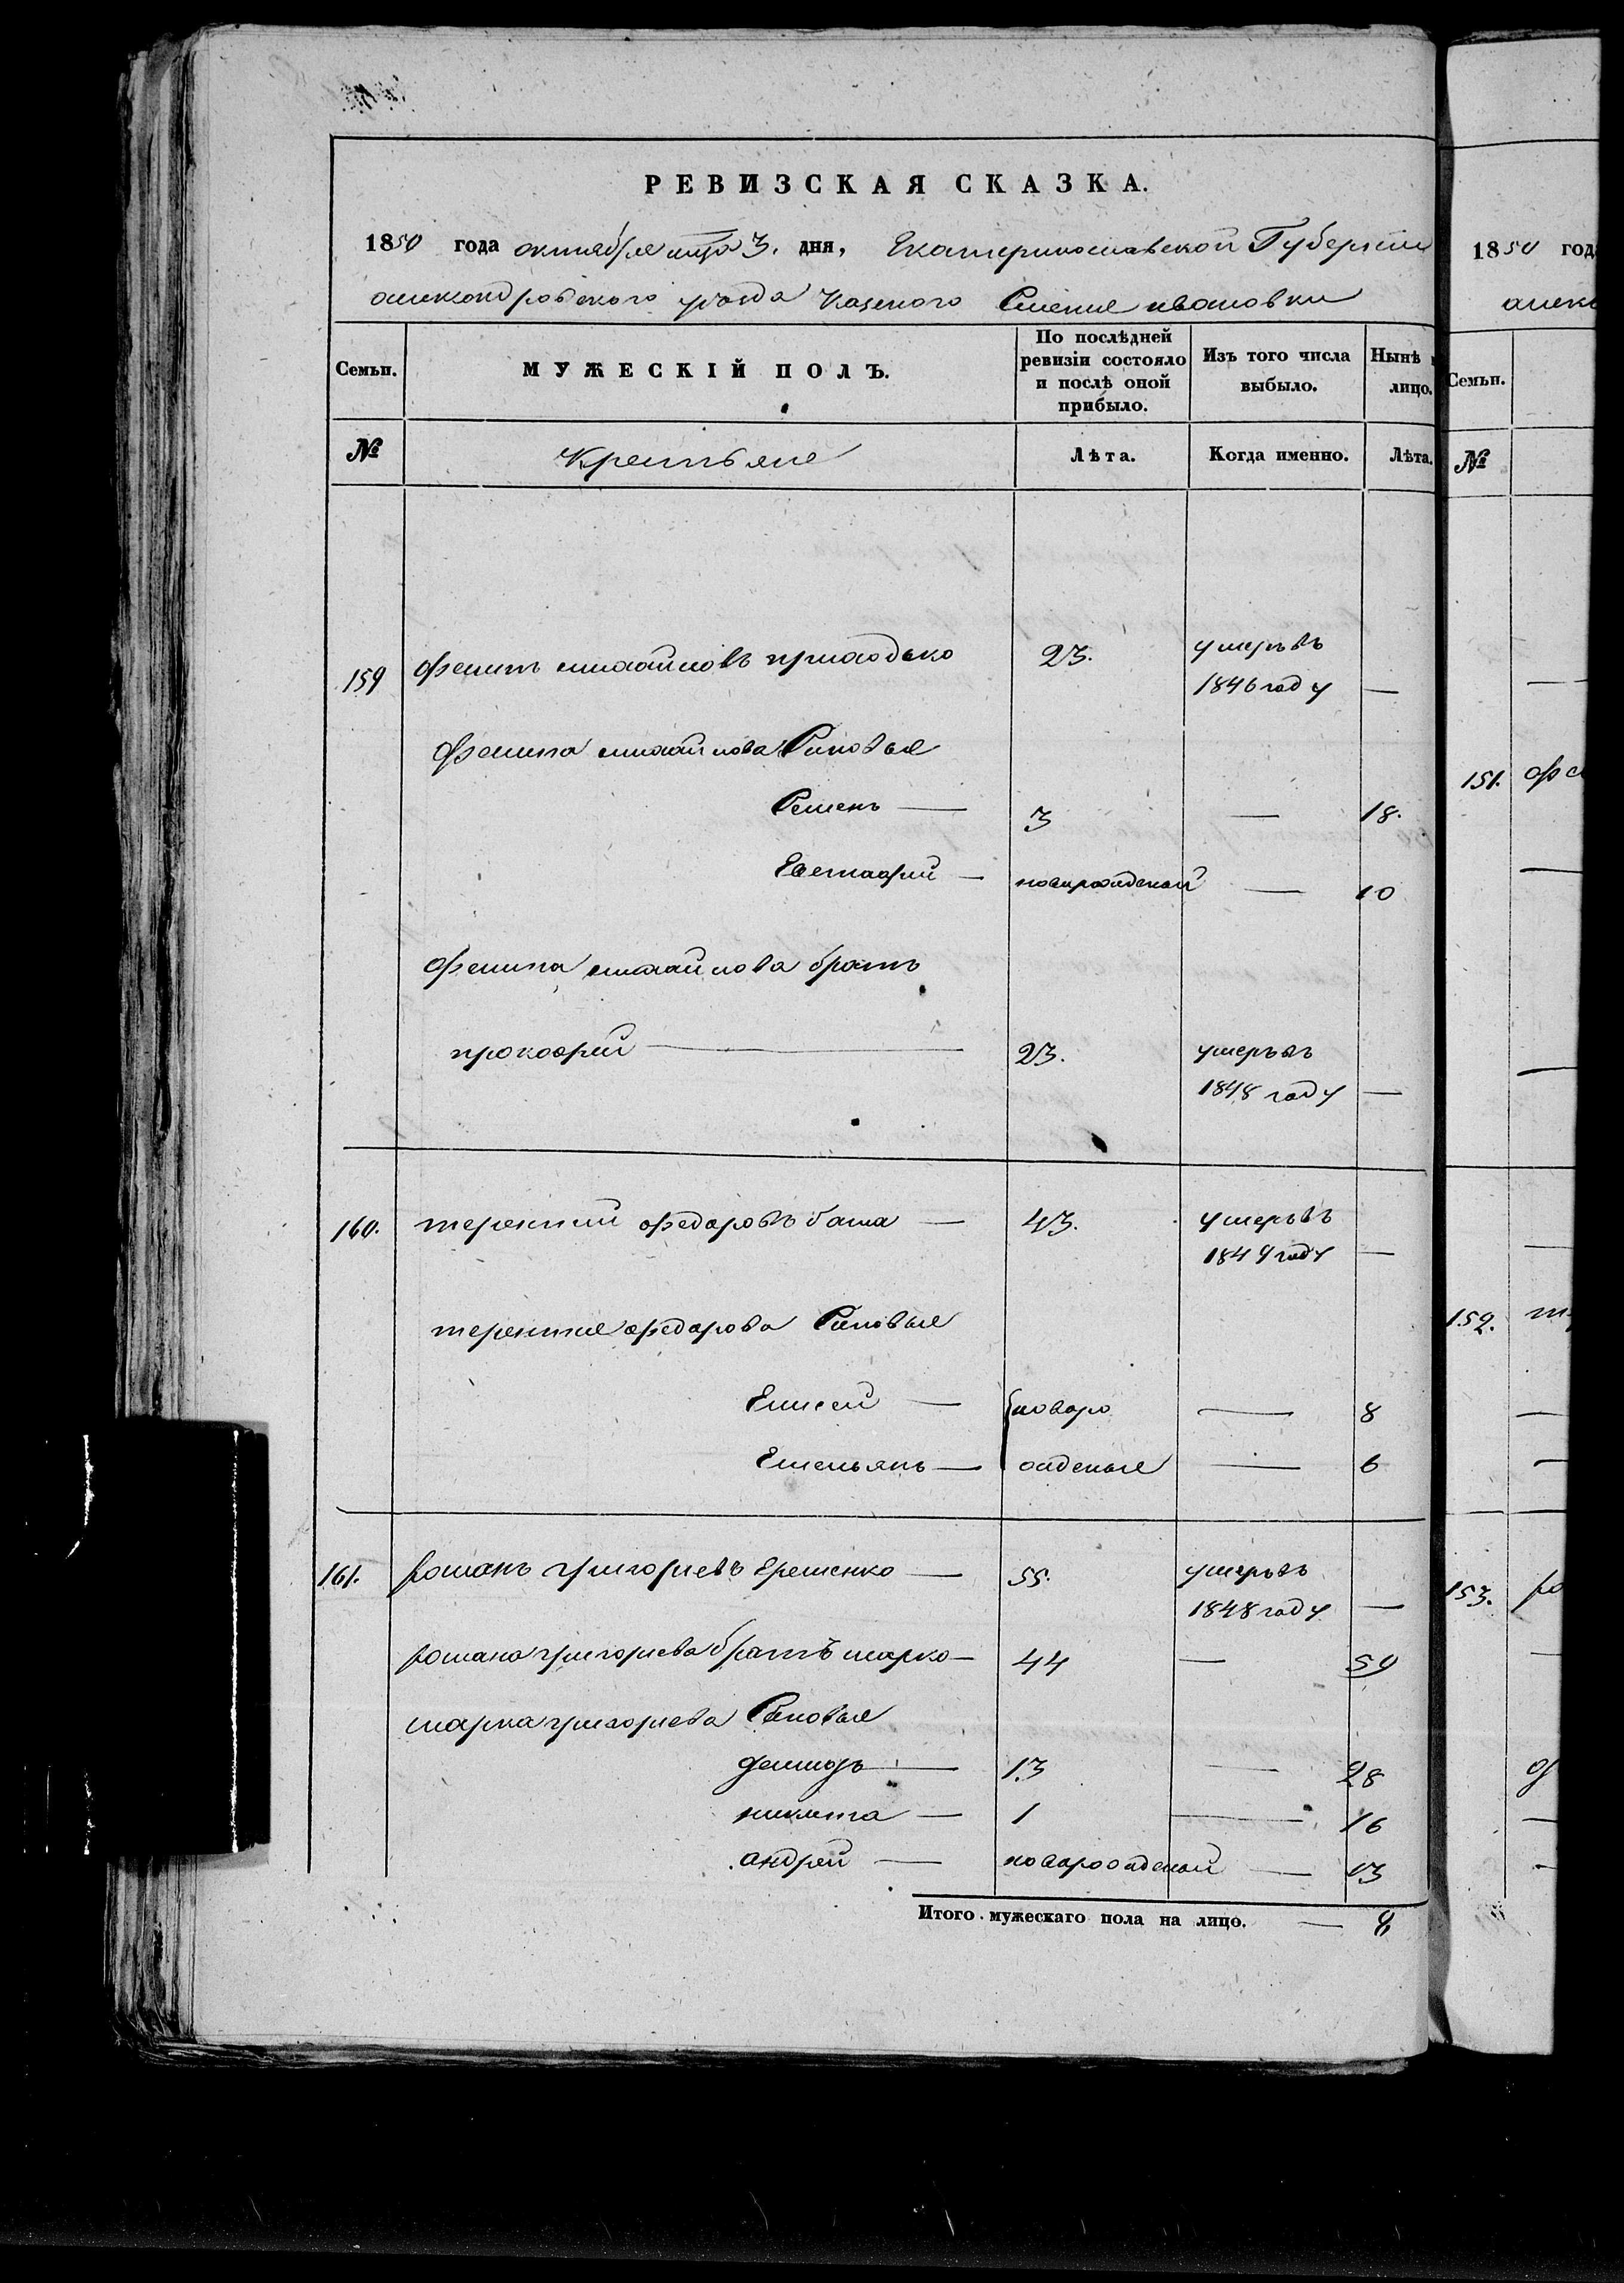 РЕВИЗСКАЯ СКАЗКА.
1850 года октября мца 3. дня, Екатеринославской Губернии
александровского уезда Казеного Селение ивановки
Семьи. МУЖЕСКІЙ ПОЛЪ. По послѣдней ревизіи состояло и послѣ оной прибыло. Изъ того числа выбыло. Нынѣ лицо.
№ Крестьяне Лѣта. Когда именно. Лѣта.
159 филипъ михайловъ приходько 23. умеръ въ
1846 году —
филипа михайлова Синовья
Семенъ — 3 — 18.
Евстафий — новорожденой — 10
филипа михайлова братъ
прокофий — 23. умеръ въ
1848 году —
160. терентий федоровъ баша — 43. умеръ въ
1849 году —
терентия федорова Синовья
Елисей — новоро — 8
Емельянъ — жденые — 6
161. романъ григориевъ Еременко — 55. умеръ въ
1848 году —
романа григориева братъ марко — 44 — 59
марка григориева Синовья
демидъ — 13 — 28
никита — 1 — 16
андрей — новорожденой — 13
Итого мужескаго пола на лицо. — 8
1850 год
алекс
Семьи.
№
151. фи
152. т
153. ро